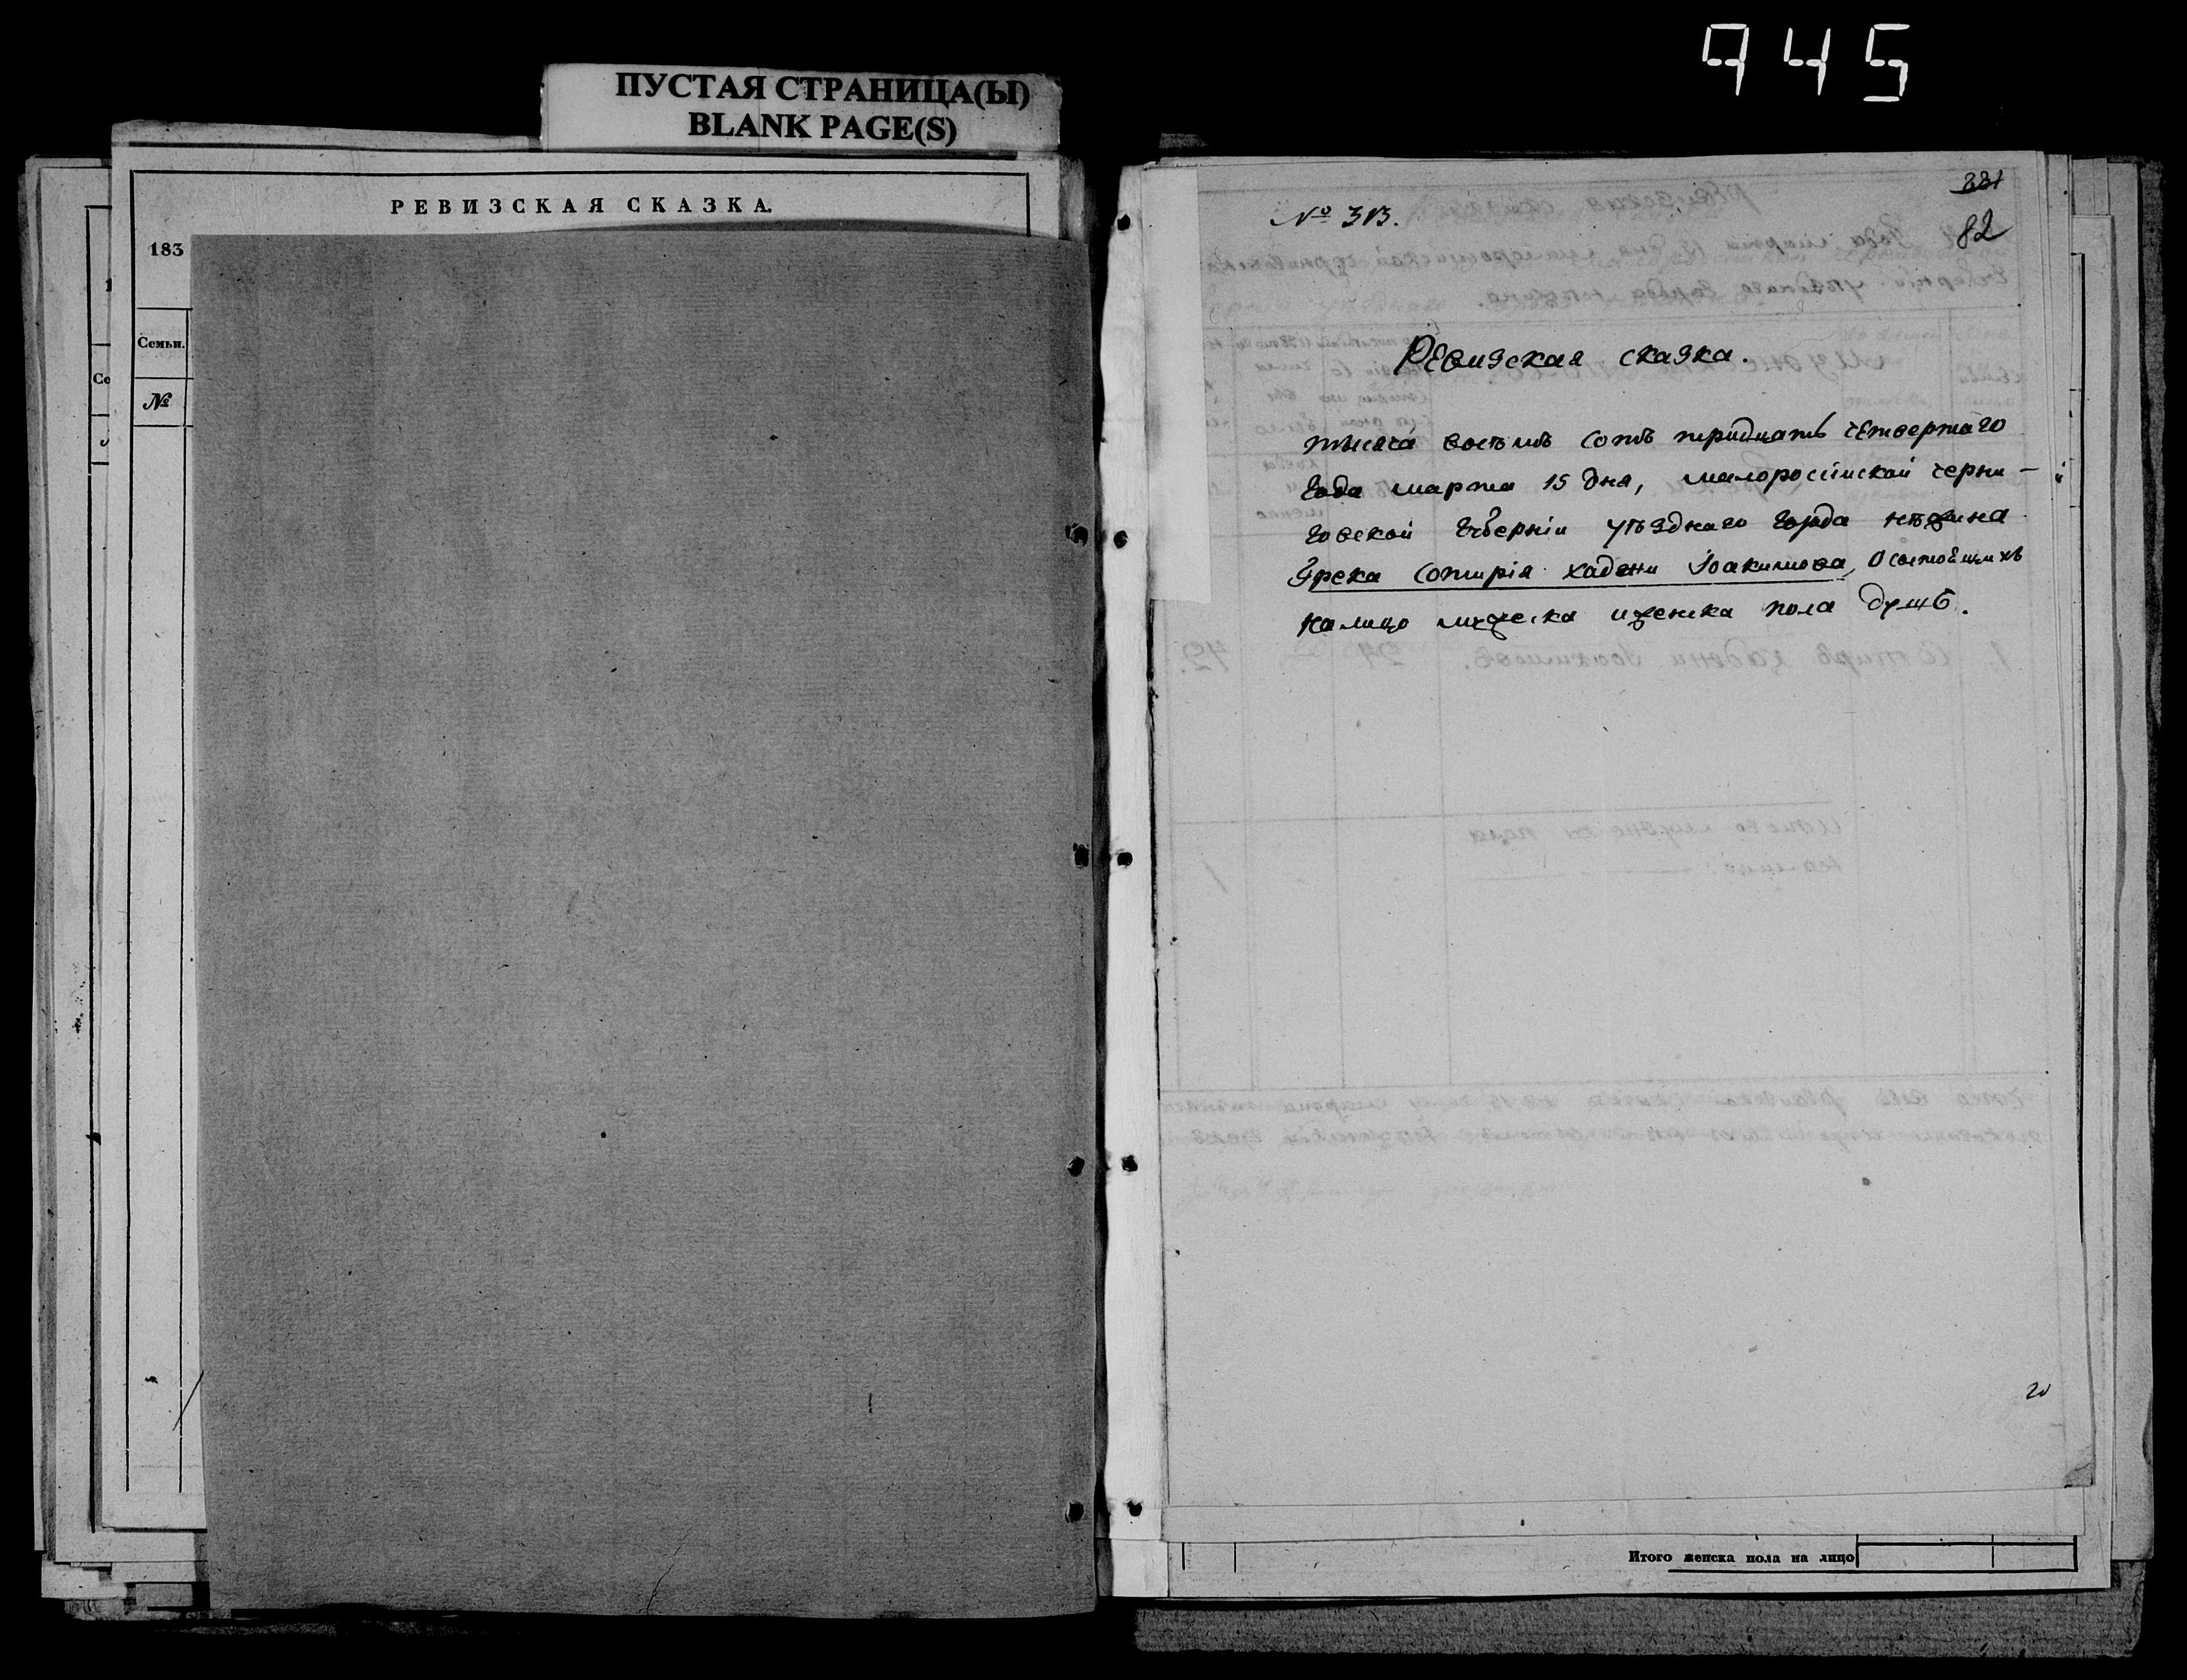 945
ПУСТАЯ СТРАНИЦА(Ы)
BLANK PAGE(S)
РЕВИЗСКАЯ СКАЗКА.
183
Семьи.
№
Се
№ 313.
331
82
Ревизская сказка.
тысяча восемь сотъ тридцать четвертаго
Года марта 15 дня, малоросiйской черни-
говской Губернiи уѣзднаго города нѣжина
Грека Сотирiя хаджи Иоакимова, О состоящихъ
налицо мужеска иженска пола душъ.
20
Итого женска пола на лицо